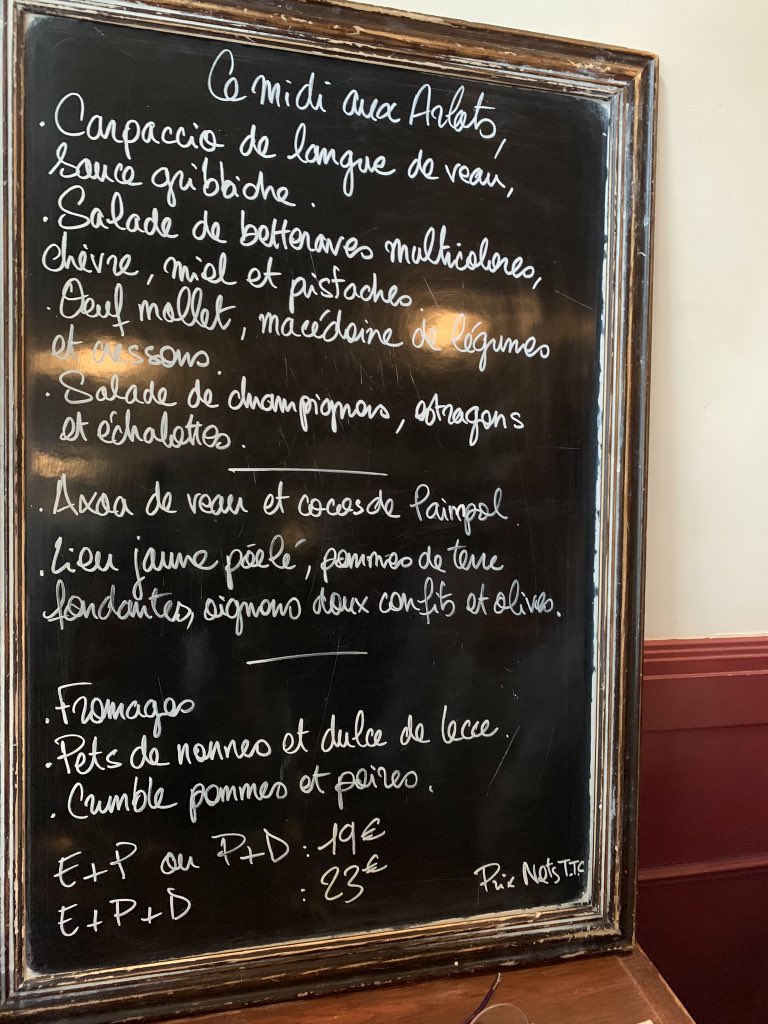 Ce midi aux Arlots,
. Carpaccio de langue de veau,
sauce gribbiche.
. Salade de betteraves multicolores,
chèvre, miel et pistaches
. Oeuf mollet, macédoine de légumes
et cressons.
. Salade de champignons, estragons
et échalottes.
. Axoa de veau et cocos de Paimpol.
. Lieu jaune poêlé, pommes de terre
fondantes, oignons doux confits et olives.
. Fromages
. Pets de nonnes et dulce de lecce.
. Cumble pommes et poires.
E+P ou P+D : 19€
E+P+D : 23€
Prix Nets T.T.C